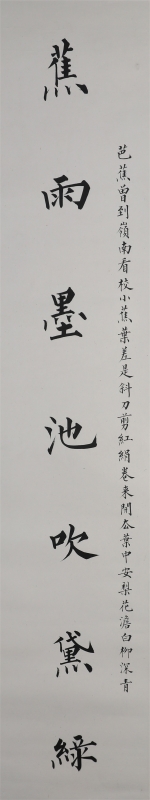 蕉雨墨池吹黛綠
芭蕉曾到嶺南看校小蕉葉差是斜刀剪紅絹卷來開在葉中安梨花澹白柳深青